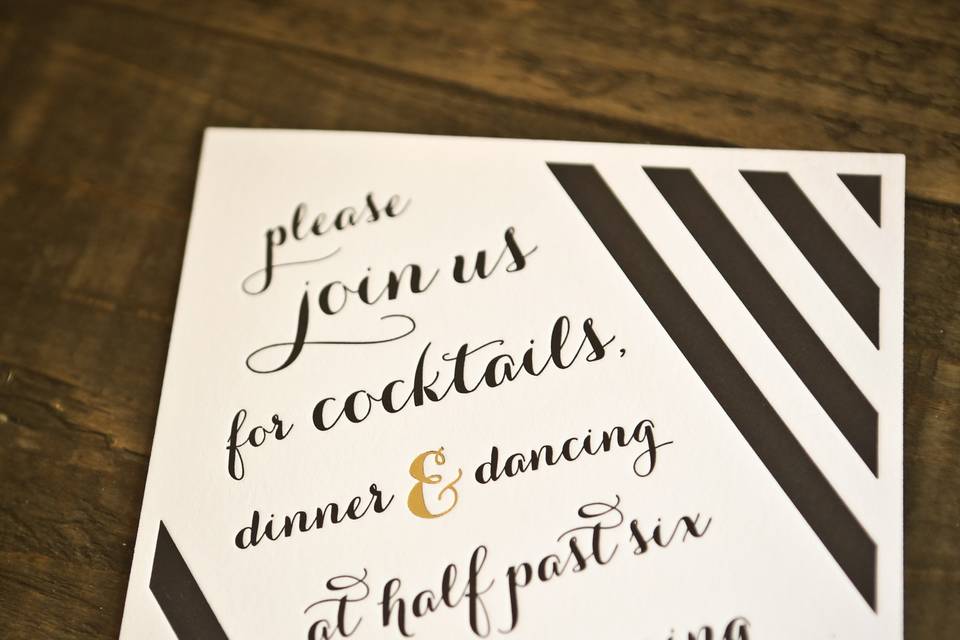 please
join us
for cocktails,
dinner & dancing
at half past six